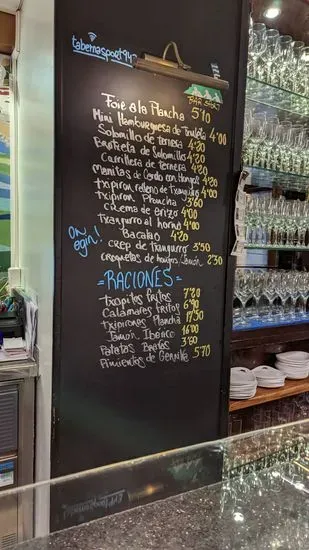 tabernasport94
BAR SPORT
Foie a la Plancha 5'10
Mini Hamburguesa de Txuleta 4'00
Solomillo de ternera 4'20
Brotxeta de Solomillo 4'20
Carrillera de ternera 4'20
Manitas de Cerdo con Hongos 4'20
Txipiron relleno de Txangurro 4'00
Txipiron Plancha 3'60
Crema de Erizo 4'00
Txangurro al horno 4'00
Bacalao 4'20
crep de txangurro 3'50
croquetas de hongos, Jamón 2'30
On egin!
=RACIONES=
txopitos fritos 7'20
Calamares fritos 6'90
Txipirones Plancha 17'50
Jamón Ibérico 16'00
Patatas Bravas 3'80
Pimientos de Gernika 5'70